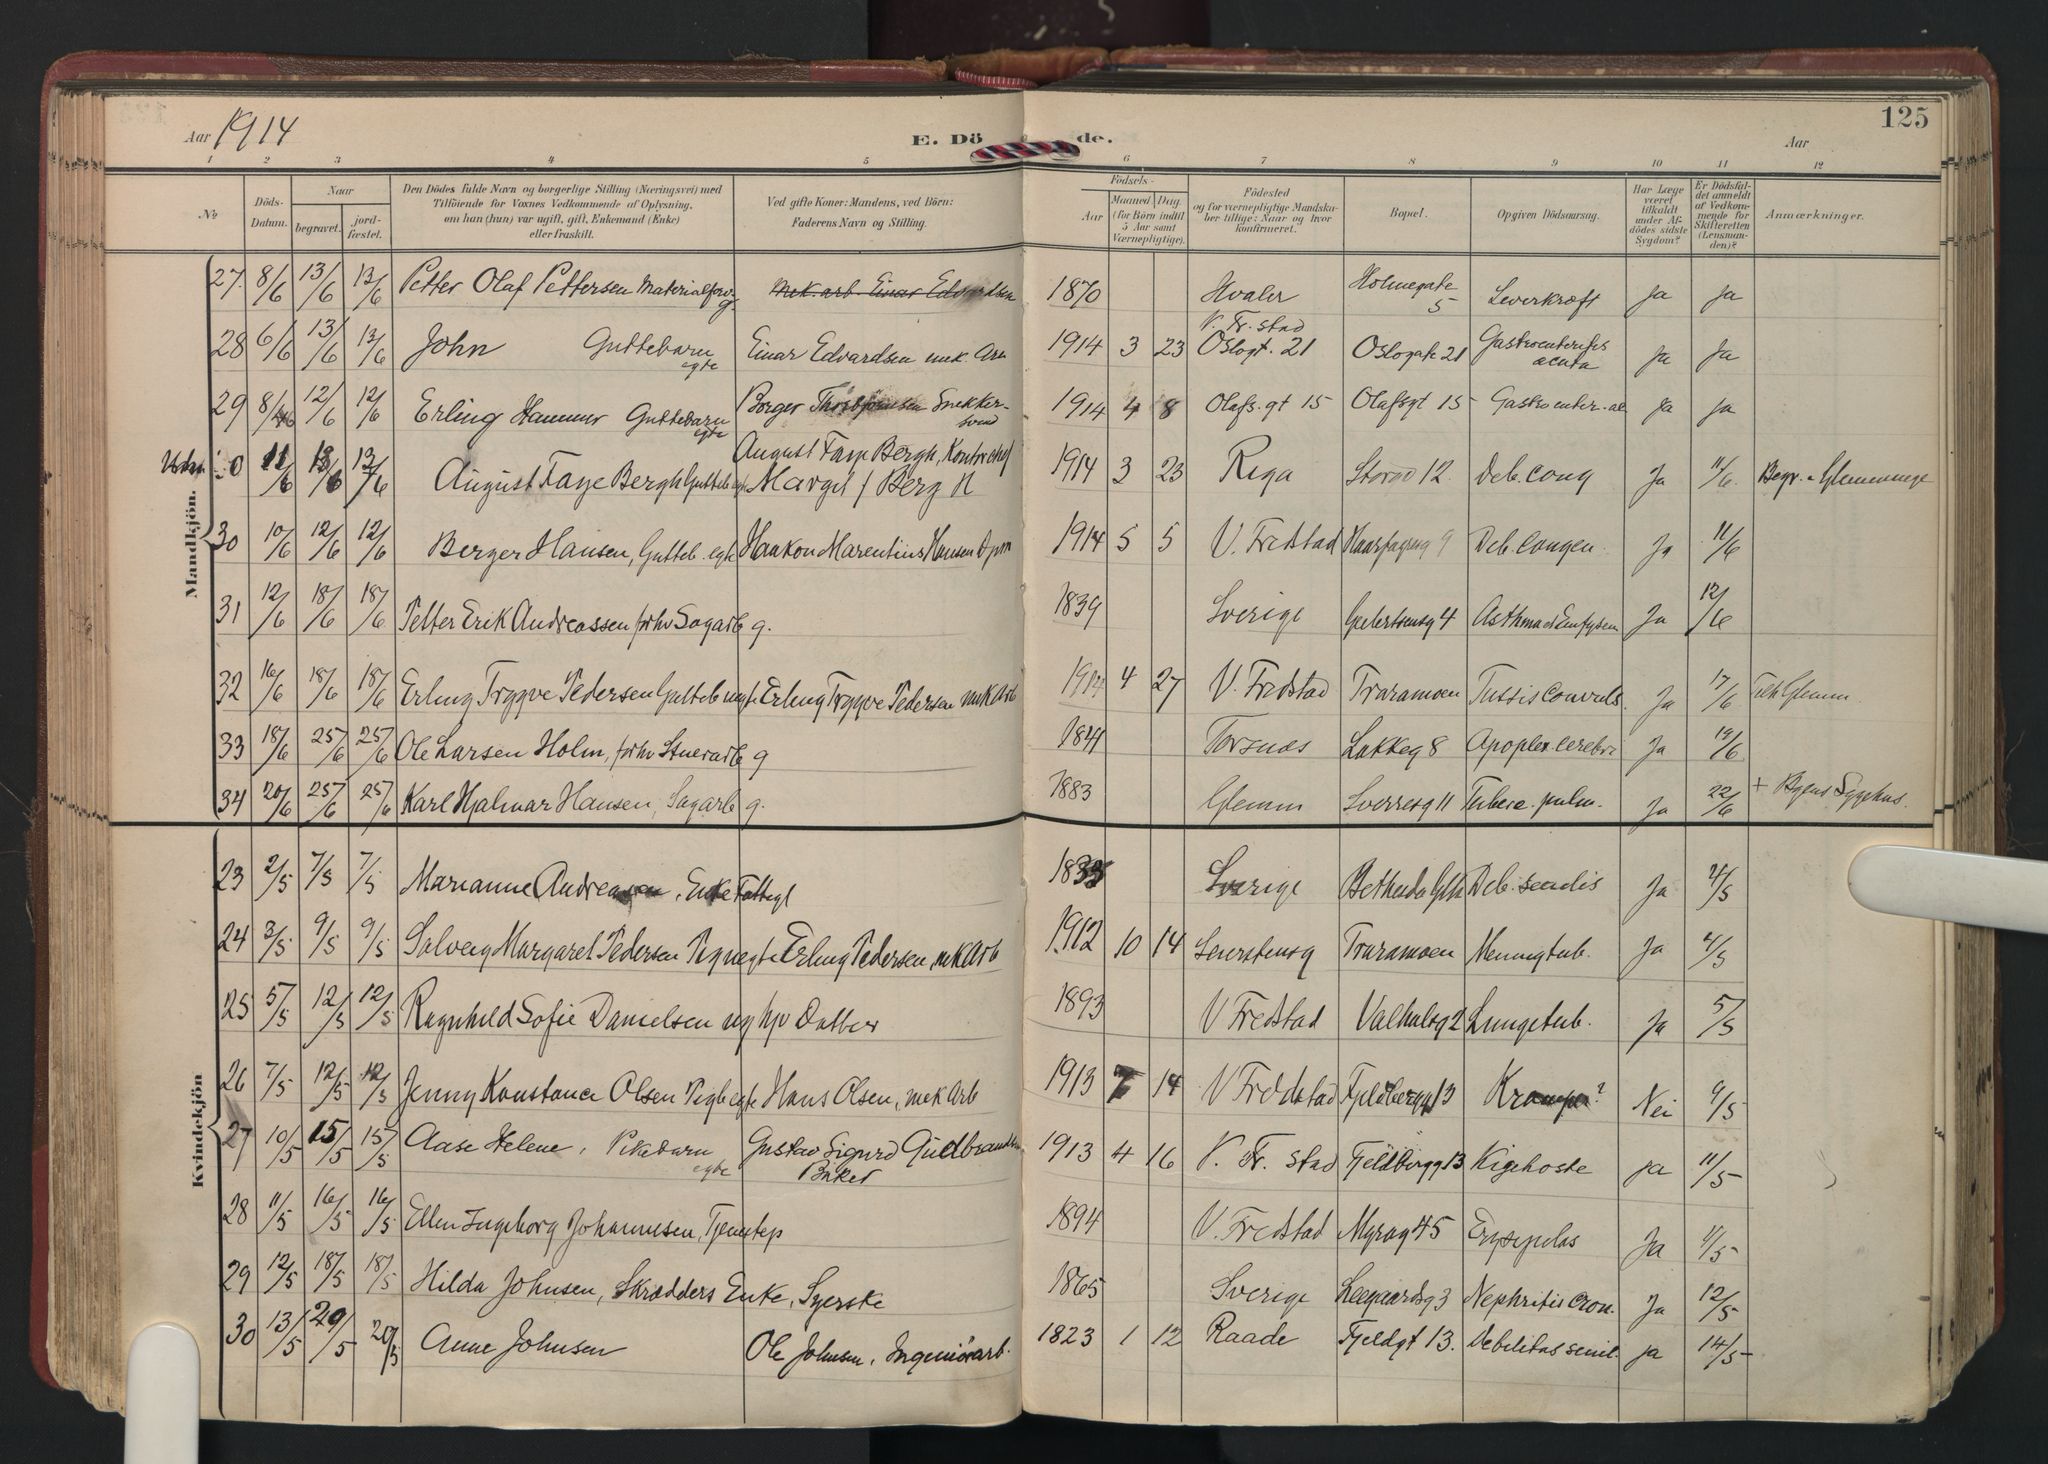 125
Aar 1914
E. Dö de.
Aar
1 2 3 4 5 6 7 8 9 10 11 12
No
Döds-Datum.
Naar
begravet.
jord-fæstet.
Den Dödes fulde Navn og borgerlige Stilling (Næringsvei) med
Tilföiende for Voxnes Vedkommende af Oplysning,
om han (hun) var ugift, gift, Enkemand (Enke)
eller fraskilt.
Ved gifte Koner: Mandens, ved Börn:
Faderens Navn og Stilling.
Födsels-
Aar
Maaned Dag.
(for Börn indtil
5 Aar samt
Værnepligtige).
Födested
og for værnepligtige Mandska-
ber tillige: Naar og hvor
konfirmeret.
Bopæl.
Opgiven Dödsaarsag.
Har Læge
været
tilkaldt
under Af-
dödes sidste
Sygdom?
Er Dödsfal-
det anmeldt
af Vedkom-
mende for
Skifteretten
(Lensman-
den)?
Anmærkninger.
Mandkjön.
27. 8/6 13/6 13/6 Petter Olaf Pettersen Mek. arb. Einar Edvardsen 1870 Hvaler Holmegate 5 Leverkræft Ja Ja
28 6/6 13/6 13/6 John Guttebarn egte Einar Edvardsen mek. Arb 1914 3 23 V. Fr. stad Oslogt. 21 Oslogate 21 Gastroenterites acuta Ja Ja
29 8/6 12/6 12/6 Erling Hammer Guttebarn egte Borger Thorbjørnsen Snekker-svend 1914 4 8 Olafs. gt 15 Olafsgt 15 Gastroenter. ac Ja Ja
11/6 13/6 13/6 August Faye Bergh Gutteb egte August Faye Bergh, Margit f Berg 1914 3 23 Riga 12. Deb. cong Ja 11/6.
30 10/6 12/6 12/6 Berger Hansen, Gutteb. egte Haakon Marentius Hansen 1914 5 5 V. Fredstad Haarfagresg 9 Deb. congen. Ja 11/6
31 12/6 18/6 18/6 Petter Erik Andreassen forhv Sagarb g. 1839 Sverige Ja 12/6
32 16/6 18/6 18/6 Erling Trygve Pedersen Gutteb uegte Erling Trygve Pedersen mek Arb 1914 4 27 V. Fredstad Traramoen Tussis convuls. Ja 17/6
33 18/6 25/6 25/6 Ole Larsen Holm, forhv Stuerarb g Torsnæs Lakkeg 8 Apoplex. cerebri Ja 19/6
34 20/6 25/6 25/6 Karl Hjalmar Hansen, Sagarb g. 1883 Glemm Sverresg 11 Tuberc. pulm. Ja 22/6 + Byens Sygehus.
Kvindekjön
23 2/5 7/5 7/5 Marianne Andreassen, Enke Fattigl Sverige Bethesda Deb. senilis Ja 4/5
24 3/5 9/5 9/5 Solveig Margaret Pedersen Erling Pedersen, mek Arb 1912 10 14 Traramoen Mening tub. Ja 4/5
25 5/5 12/5 12/5 Ragnhild Sofie Danielsen ug hjv Datter 1893 V Fredstad Valhalsg 2 Lungetub. Ja 5/5
26 7/5 12/5 12/5 Jenny Konstance Olsen Pigeb egte Hans Olsen, mek Arb 1913 7 14 V Fredstad Fjeldbergg 13 Krampe? Nei 9/5
27 10/5 15/5 15/5 Aase Helene, Pikebarn egte Gustav Sigurd Gudbrandsen 1913 4 16 V. Fr. stad Fjeldbergg 13 Kighoste Ja 11/5
28 11/5 16/5 16/5 Ellen Ingeborg Johannesen, Tjenestep 1894 V. Fredstad Myrag 45 Erysipelas Ja 11/5
29 12/5 18/5 18/5 Hilda Johnsen, Skrædders Enke, Syerske 1865 Sverige Leegaardsg 3 Nephritis cron. Ja 12/5
30 13/5 20/5 20/5 Anne Johnsen Ole Johnsen, Ingeniörarb. 1823 1 12 Raade Fjeldgt 13. Debilitas senil. Ja 14/5